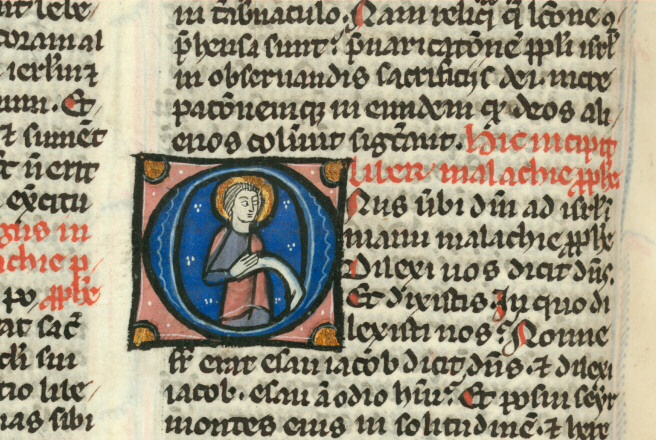 ut lebe
coram al
ierlm ⁊
um. Et
⁊ sumet
t ñ erit
exercitu
gus in
achie p
po pphe
at sac̃
di sui
tio lite
nas sibi
in tabnaculo. Nam relicti q̃ lcone q̃
p̃hensa sunt: p̃uaricatõne ppli isrl
in obseruandis sacrificijs dei. incre
patõnemq; in eundem q̃ deos ali
enos coluit sig̃cant. Hic incipit
liber malachie pphe
Onus ũbi dñi ad isrl i
manu malachie pphe
Dilexi uos dicit dñs.
Et dixistis In quo di
lexisti nos? Nonne
fr̃ erat esau iacob dicit dñs. ⁊ dilexi
iacob. esau ã odio hui. Et posui seyr
montes eius in solitudinẽ. ⁊ here